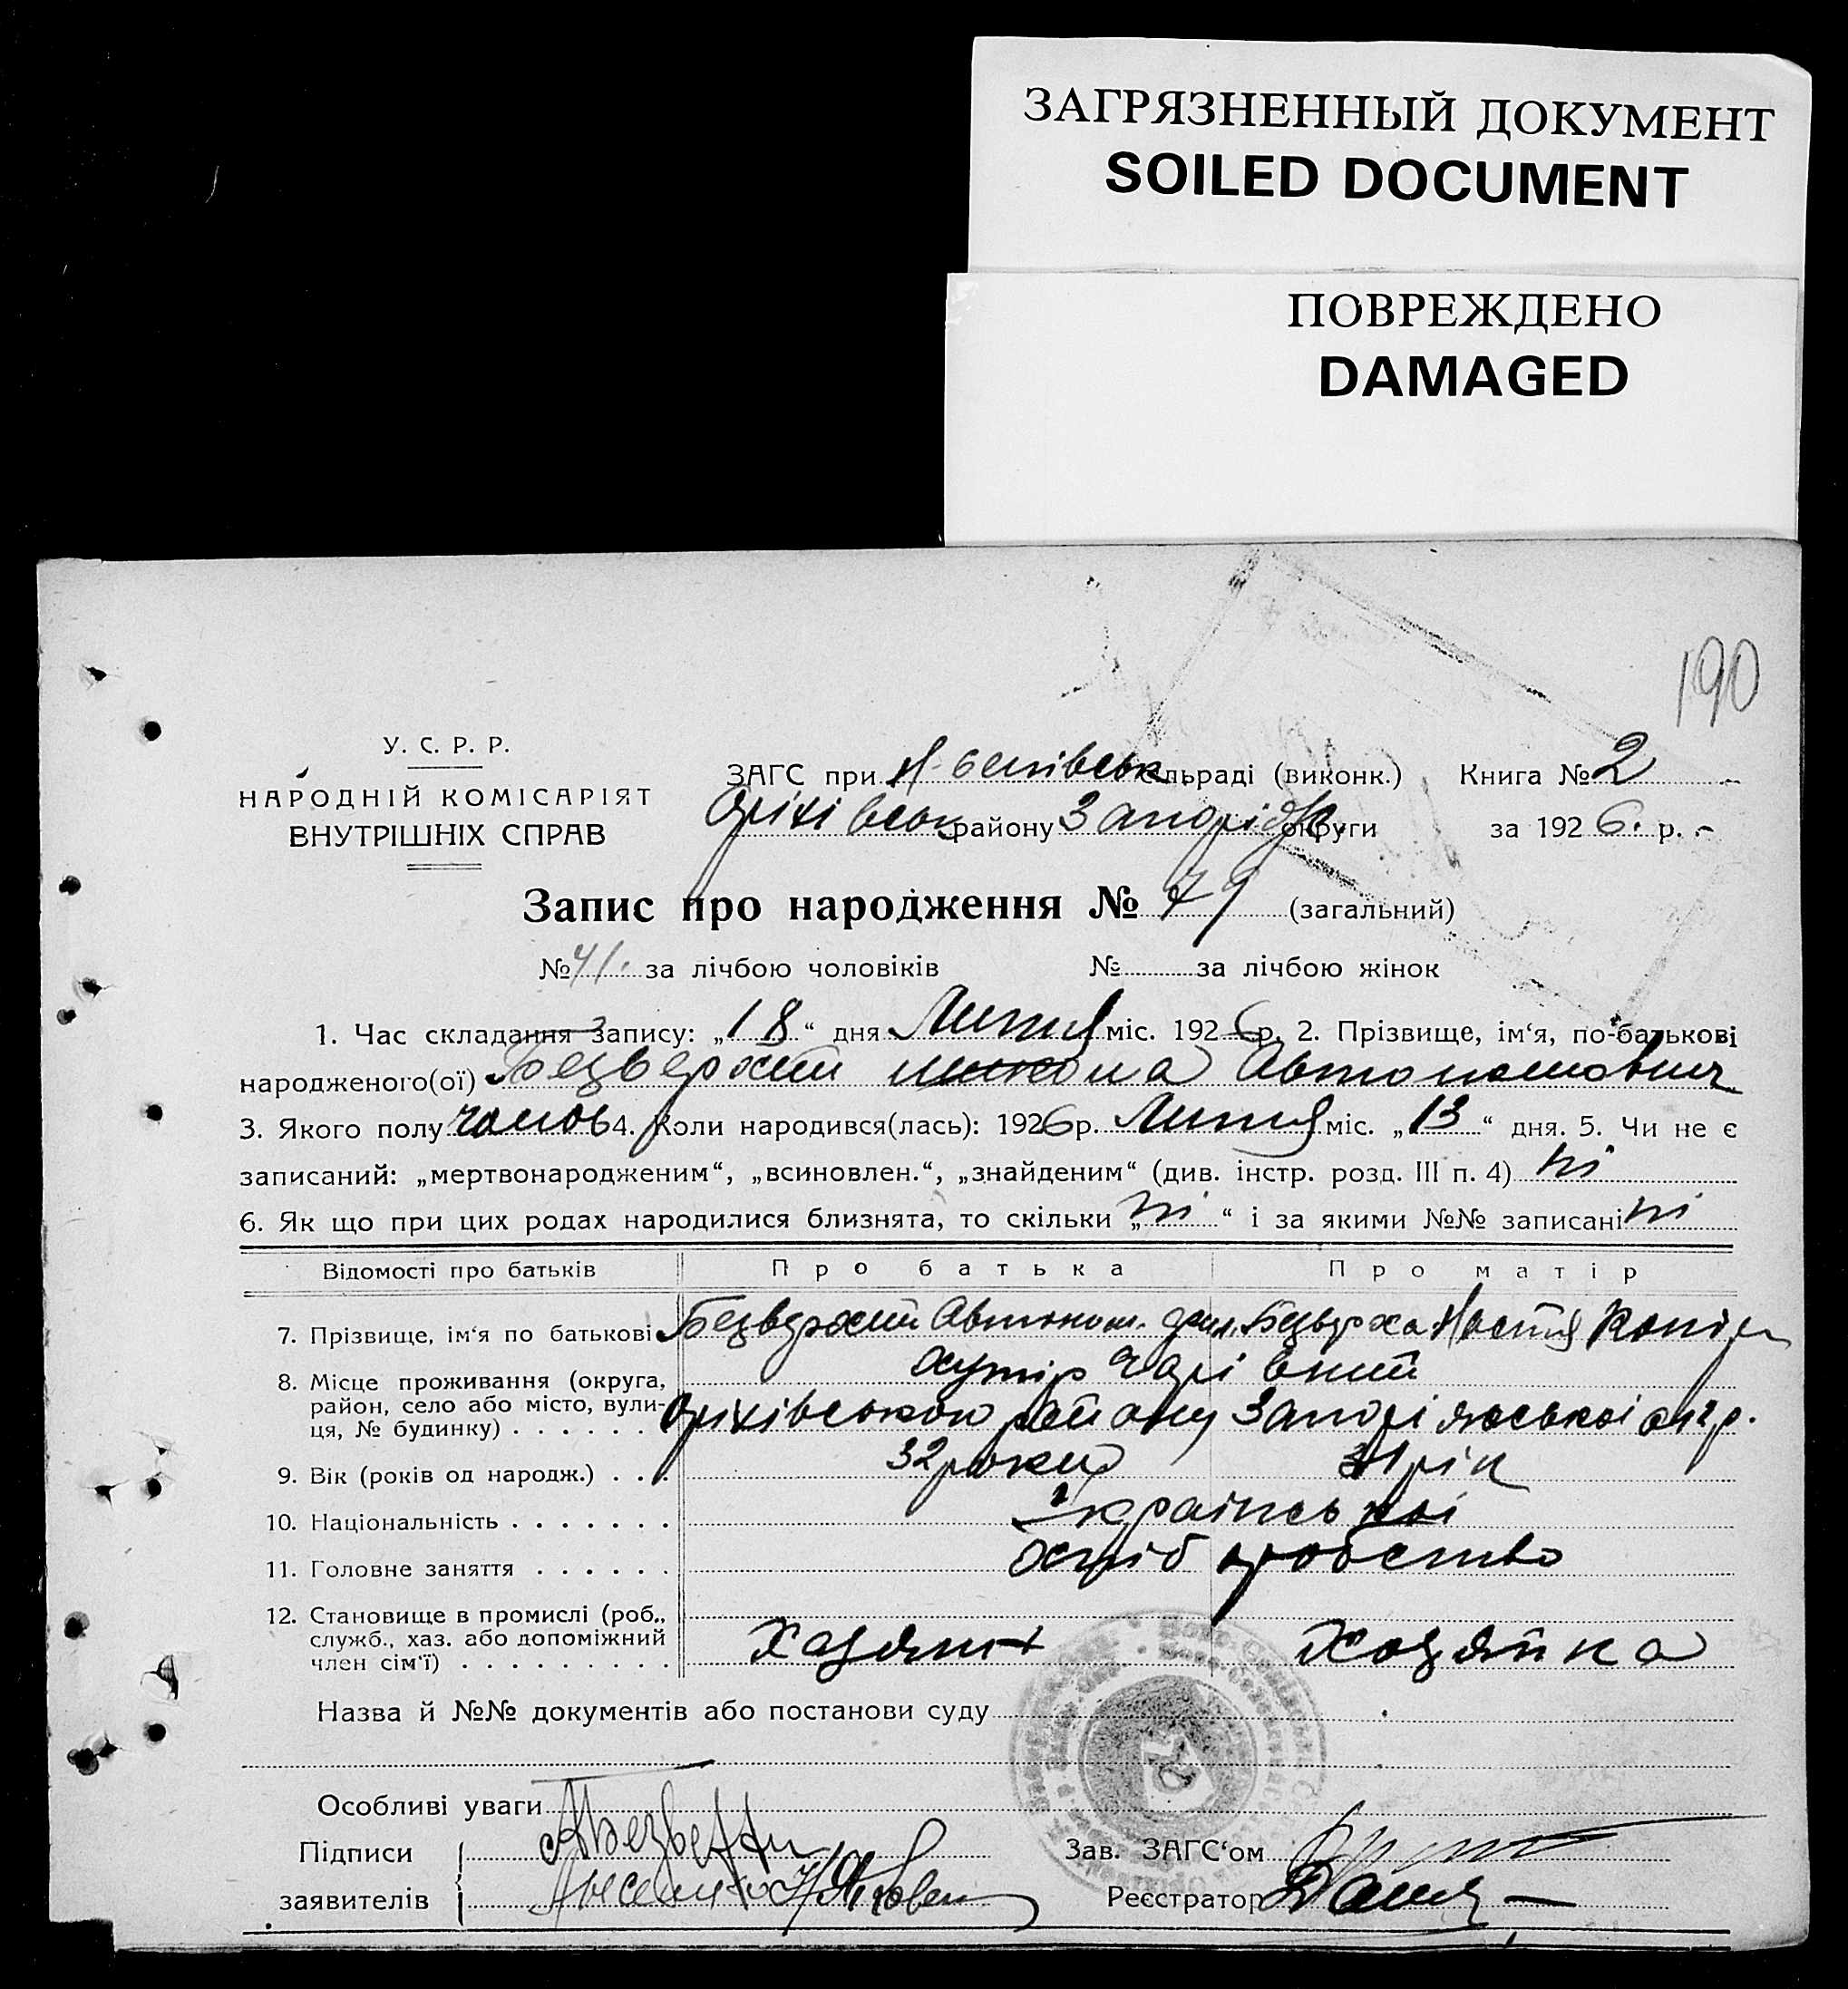 ЗАГРЯЗНЕННЫЙ ДОКУМЕНТ
SOILED DOCUMENT
ПОВРЕЖДЕНО
DAMAGED
190
У. С. Р. Р.
НАРОДНІЙ КОМІСАРІЯТ
ВНУТРІШНІХ СПРАВ
ЗАГС при сельраді (виконк.) Книга № 2
Оріхівськ району Запоріж округи за 1926. р.
Запис про народження № 79 (загальний)
№ 41. за лічбою чоловіків № за лічбою жінок
1. Час складання запису: „18“ дня Липня міс. 1926 р. 2. Прізвище, ім‘я, по-батькові
народженого(ої) Безверхий Микола Автономович
3. Якого полу чолов 4. Коли народився(лась): 1926 р. Липня міс. „13“ дня. 5. Чи не є
записаний: „мертвонародженим“, „всиновлен.“, „знайденим“ (див. інстр. розд. III п. 4) ні
6. Як що при цих родах народилися близнята, то скільки „ні“ і за якими №№ записані ні
Відомості про батьків Про батька Про матір
7. Прізвище, ім‘я по батькові Безверхий Автоном. Безверха Настя
8. Місце проживання (округа, район, село або місто, вулиця, № будинку) . . . . . . хутір Чарівний
Оріхівського району Запоріжської окр.
9. Вік (років од народж.) . . . 32 роки 31 рік
10. Національність . . . . . . . Українські
11. Головне заняття . . . . . . Хліборобство
12. Становище в промислі (роб., служб., хаз. або допоміжний член сім‘ї) . . . . . . . . . Хазяїн Хазяйка
Назва й №№ документів або постанови суду
Особливі уваги
Підписи
заявителів
Зав. ЗАГС‘ом
Реєстратор